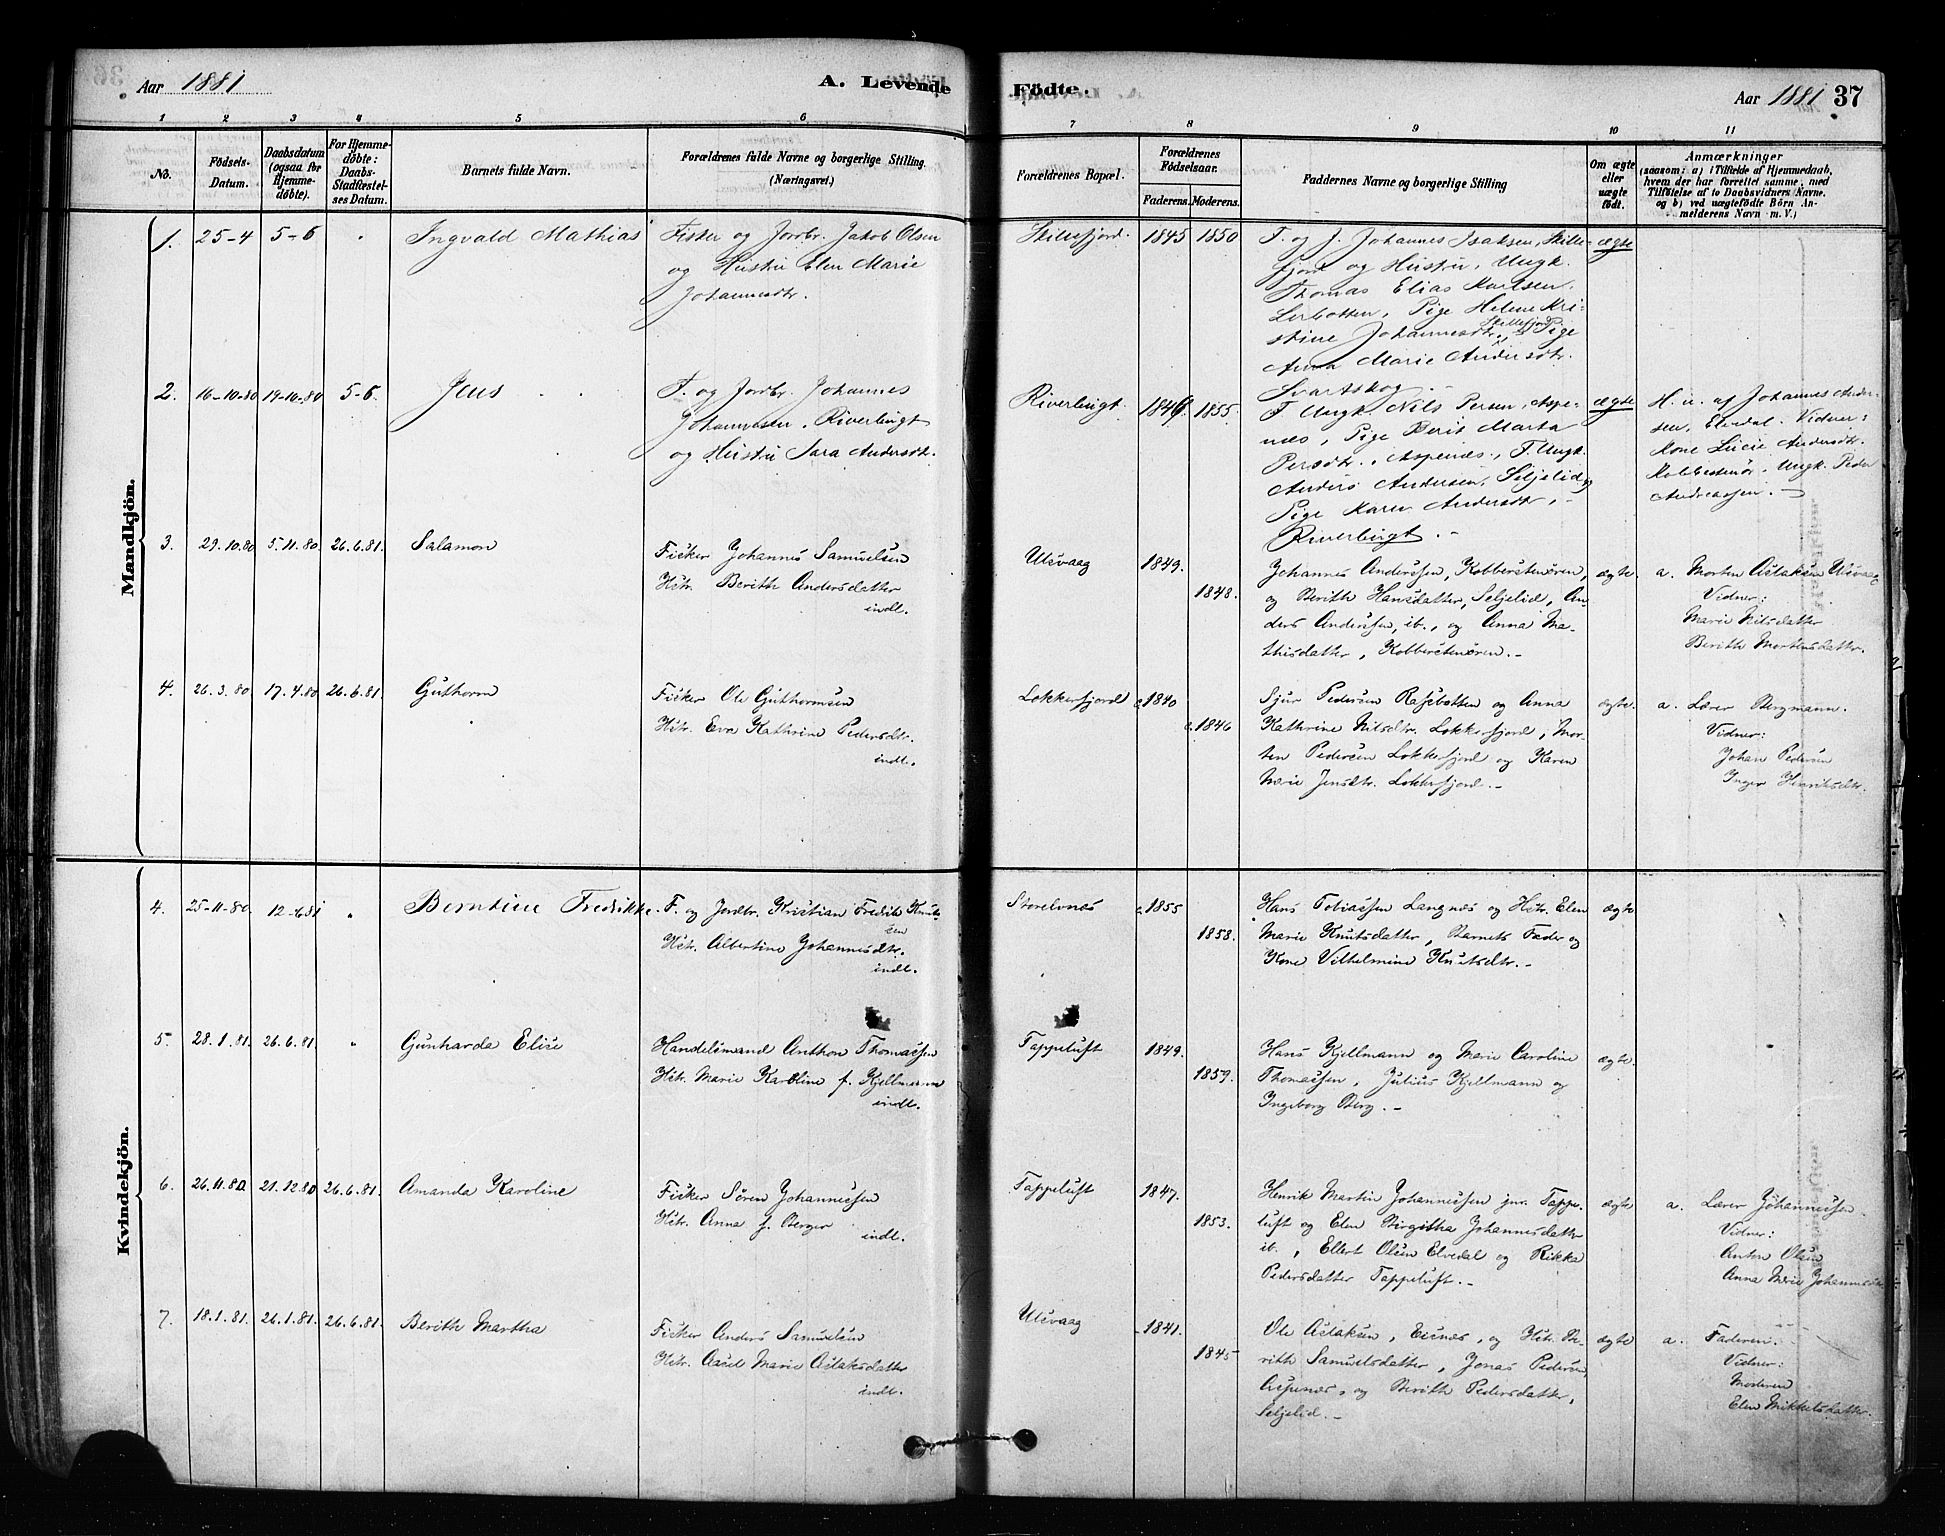 Aar 1881
A. Levende
Fødte.
Aar 1881 37
1 2 3 4 5 6 7 8 9 10 11
No.
Fødsels-
Datum.
Daabsdatum
(ogsaa for
Hjemme-
døbte).
For Hjemme-
døbte:
Daabs-
Stadfæstel-
ses Datum.
Barnets fulde Navn.
Forældrenes fulde Navne og borgerlige Stilling.
(Næringsvei.)
Forældrenes Bopæl.
Forældrenes
Fødselsaar.
Faderens. Moderens.
Faddernes Navne og borgerlige Stilling
Om ægte
eller
uægte
født.
Anmærkninger
(saasom: a) i Tilfælde af Hjemmedaab,
hvem der har forrettet samme, med
Tilføielse af to Daabsvidners Navne.
og b) ved uægtefødte Børn An-
melderens Navn m. V.)
Mandkjön.
1. 25-4 5-6 " Ingvald Mathias
Fisker og Jordbr. Jakob Olsen
og Hustru Elen Marie
Johannesdtr.
Skillefjord. 1845 1850
F. og J. Johannes Isaksen, Skille-
fjord og Hustru, Ungk.
Thomas Elias Karlsen,
Lerbotten, Pige Helene Kri-
stine Johannesdtr. Skillefjord, Pige
Anna Marie Andersdtr.
Svartskog. -
ægte
2. 16-10-80 19-10-80 5-6. Jens
F. og Jordbr. Johannes
Johannessen, Riverbugt
og Hustru Sara Andersdtr.
Riverbugt. 1846. 1855.
F. Ungk. Nils Persen, Aspe-
næs, Pige Berit Marta
Persdtr., Aspenæs, F. Ungk.
Anders Andersen, Seljelid og
Pige Karen Andersdtr,
Riverbugt. -
ægte
H. u. af Johannes Ander-
sen, Elvedal. Vidner:
Kone Lucie Andersdtr.
Kobbestenør. Ungk. Peder
Andreassen. -
3. 29.10.80 5.11.80. 26.6.81. Salamon
Fisker Johannes Samuelsen
Hstr. Berith Andersdatter
indl.
Ulsvaag 1849.
1848.
Johannes Anderssen, Kobberstenören,
og Berith Hansdatter, Seljelid, An-
ders Anderssen, ib., og Anna Ma-
thisdatter, Kobberstenören. -
ægte.
a. Morten Aslaksen Ulsvaag
Vidner:
Marie Nilsdatter
Berith Mortensdatter.
4. 26.3.80 17.4.80 26.6.81. Guthorm
Fisker Ole Guthormsen
Hstr. Eva Kathrine Pedersdtr.
indl.
Lokkerfjord c. 1840
c. 1846
Sjur Pedersen Rassebotten og Anna
Kathrine Nilsdtr. Lokkerfjord, Mor-
ten Pedersen Lokkerfjord og Karen
Marie Jensdtr. Lokkerfjord. -
ægte.
a. Lærer Bergmann.
Vidner:
Johan Pedersen
Inger Henriksdtr.
Kvindekjön.
4. 25-11-80. 12-6.81 " Berntine Fredrikke.
F. og Jordbr. Kristian Fredrik Knut-
sen
Hstr. Albertine Johannesdtr.
indl.
Storelvnæs c. 1855
1858.
Hans Tobiassen Langnæs og Hstr. Elen
Marie Knutsdatter, Barnets Fader og
Kone Vilhelmine Knutsdtr. -
ægte
5. 28.1.81. 26.6.81. " Gunharda Elise
Handelsmand Anthon Thomassen
Hstr. Marie Karoline f. Kjellmann
indl.
Tappeluft 1849.
1859.
Hans Kjellmann og Marie Caroline
Thomassen, Julius Kjellmann og
Ingeborg Berg. -
ægte
6. 26.11.80 21.12.80 26.6.81. Amanda Karoline
Fisker Sören Johannessen
Hstr. Anna f. Berger
indl.
Tappeluft 1847.
1853.
Henrik Martin Johannessen jnr. Tappe-
luft og Elen Birgitha Johannesdatter
ib., Ellert Olsen Elvedal og Rikka
Pedersdatter Tappeluft. -
ægte
a. Lærer Johannessen.
Vidner:
Anton Olsen
Anna Marie Johannesdtr
7. 18.1.81. 26.1.81. 26.6.81. Berith Martha
Fisker Anders Samuelsen
Hstr. Aasel Marie Aslaksdatter
indl.
Ulsvaag 1841.
1845
Ole Aslaksen, Eisnæs, og Hstr. Be-
rith Samuelsdatter, Jonas Pedersen,
Aspenæs, og Berith Pedersdatter,
Seljelid. -
ægte
a. Faderen.
Vidner:
Moderen
Elen Mikkelsdatter.